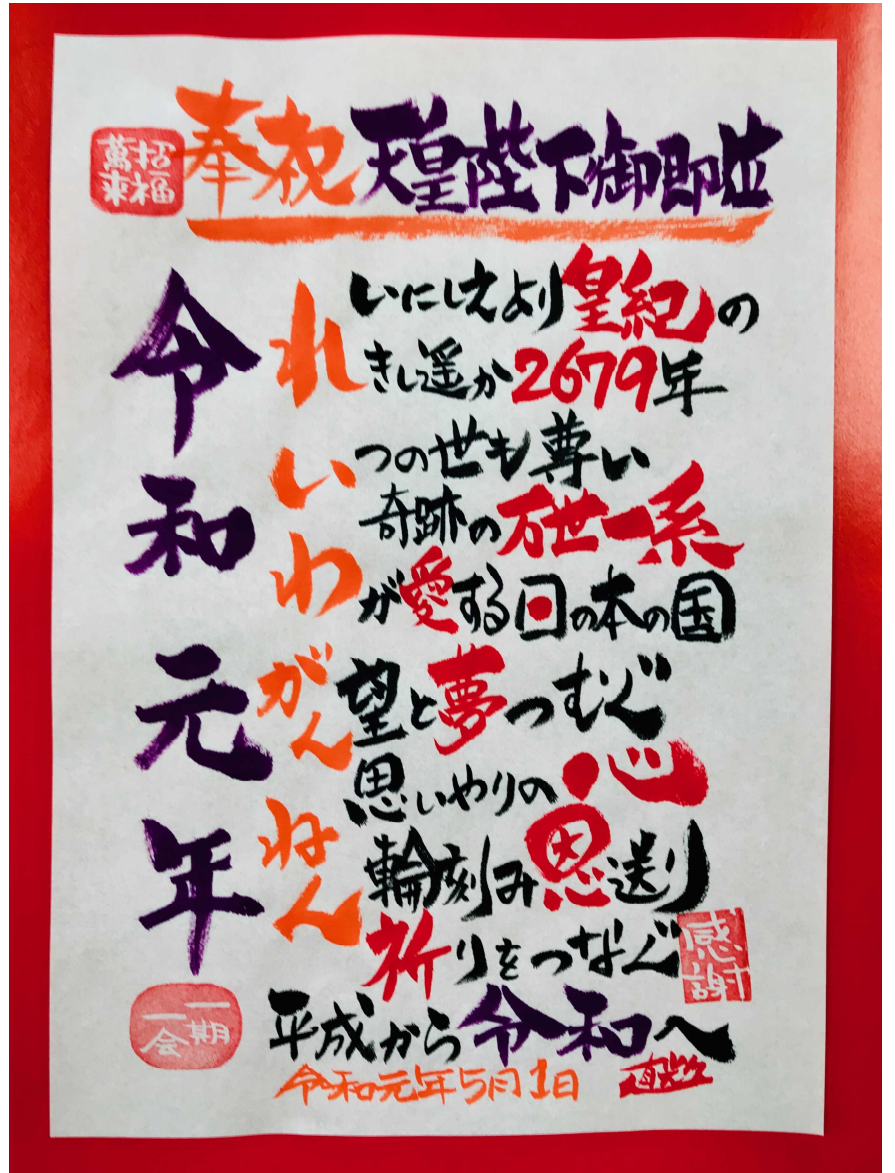 招福萬来
奉祝 天皇陛下御即位
令和元年
れいわがんねん
いにしえより皇紀の
きし遥か2679年
つの世も尊い
奇跡の万世一系
が愛する日の本の国
望と夢つむぐ
思いやりの心
輪刻み恩送り
祈りをつなぐ
感謝
平成から令和へ
令和元年5月1日
一期一会